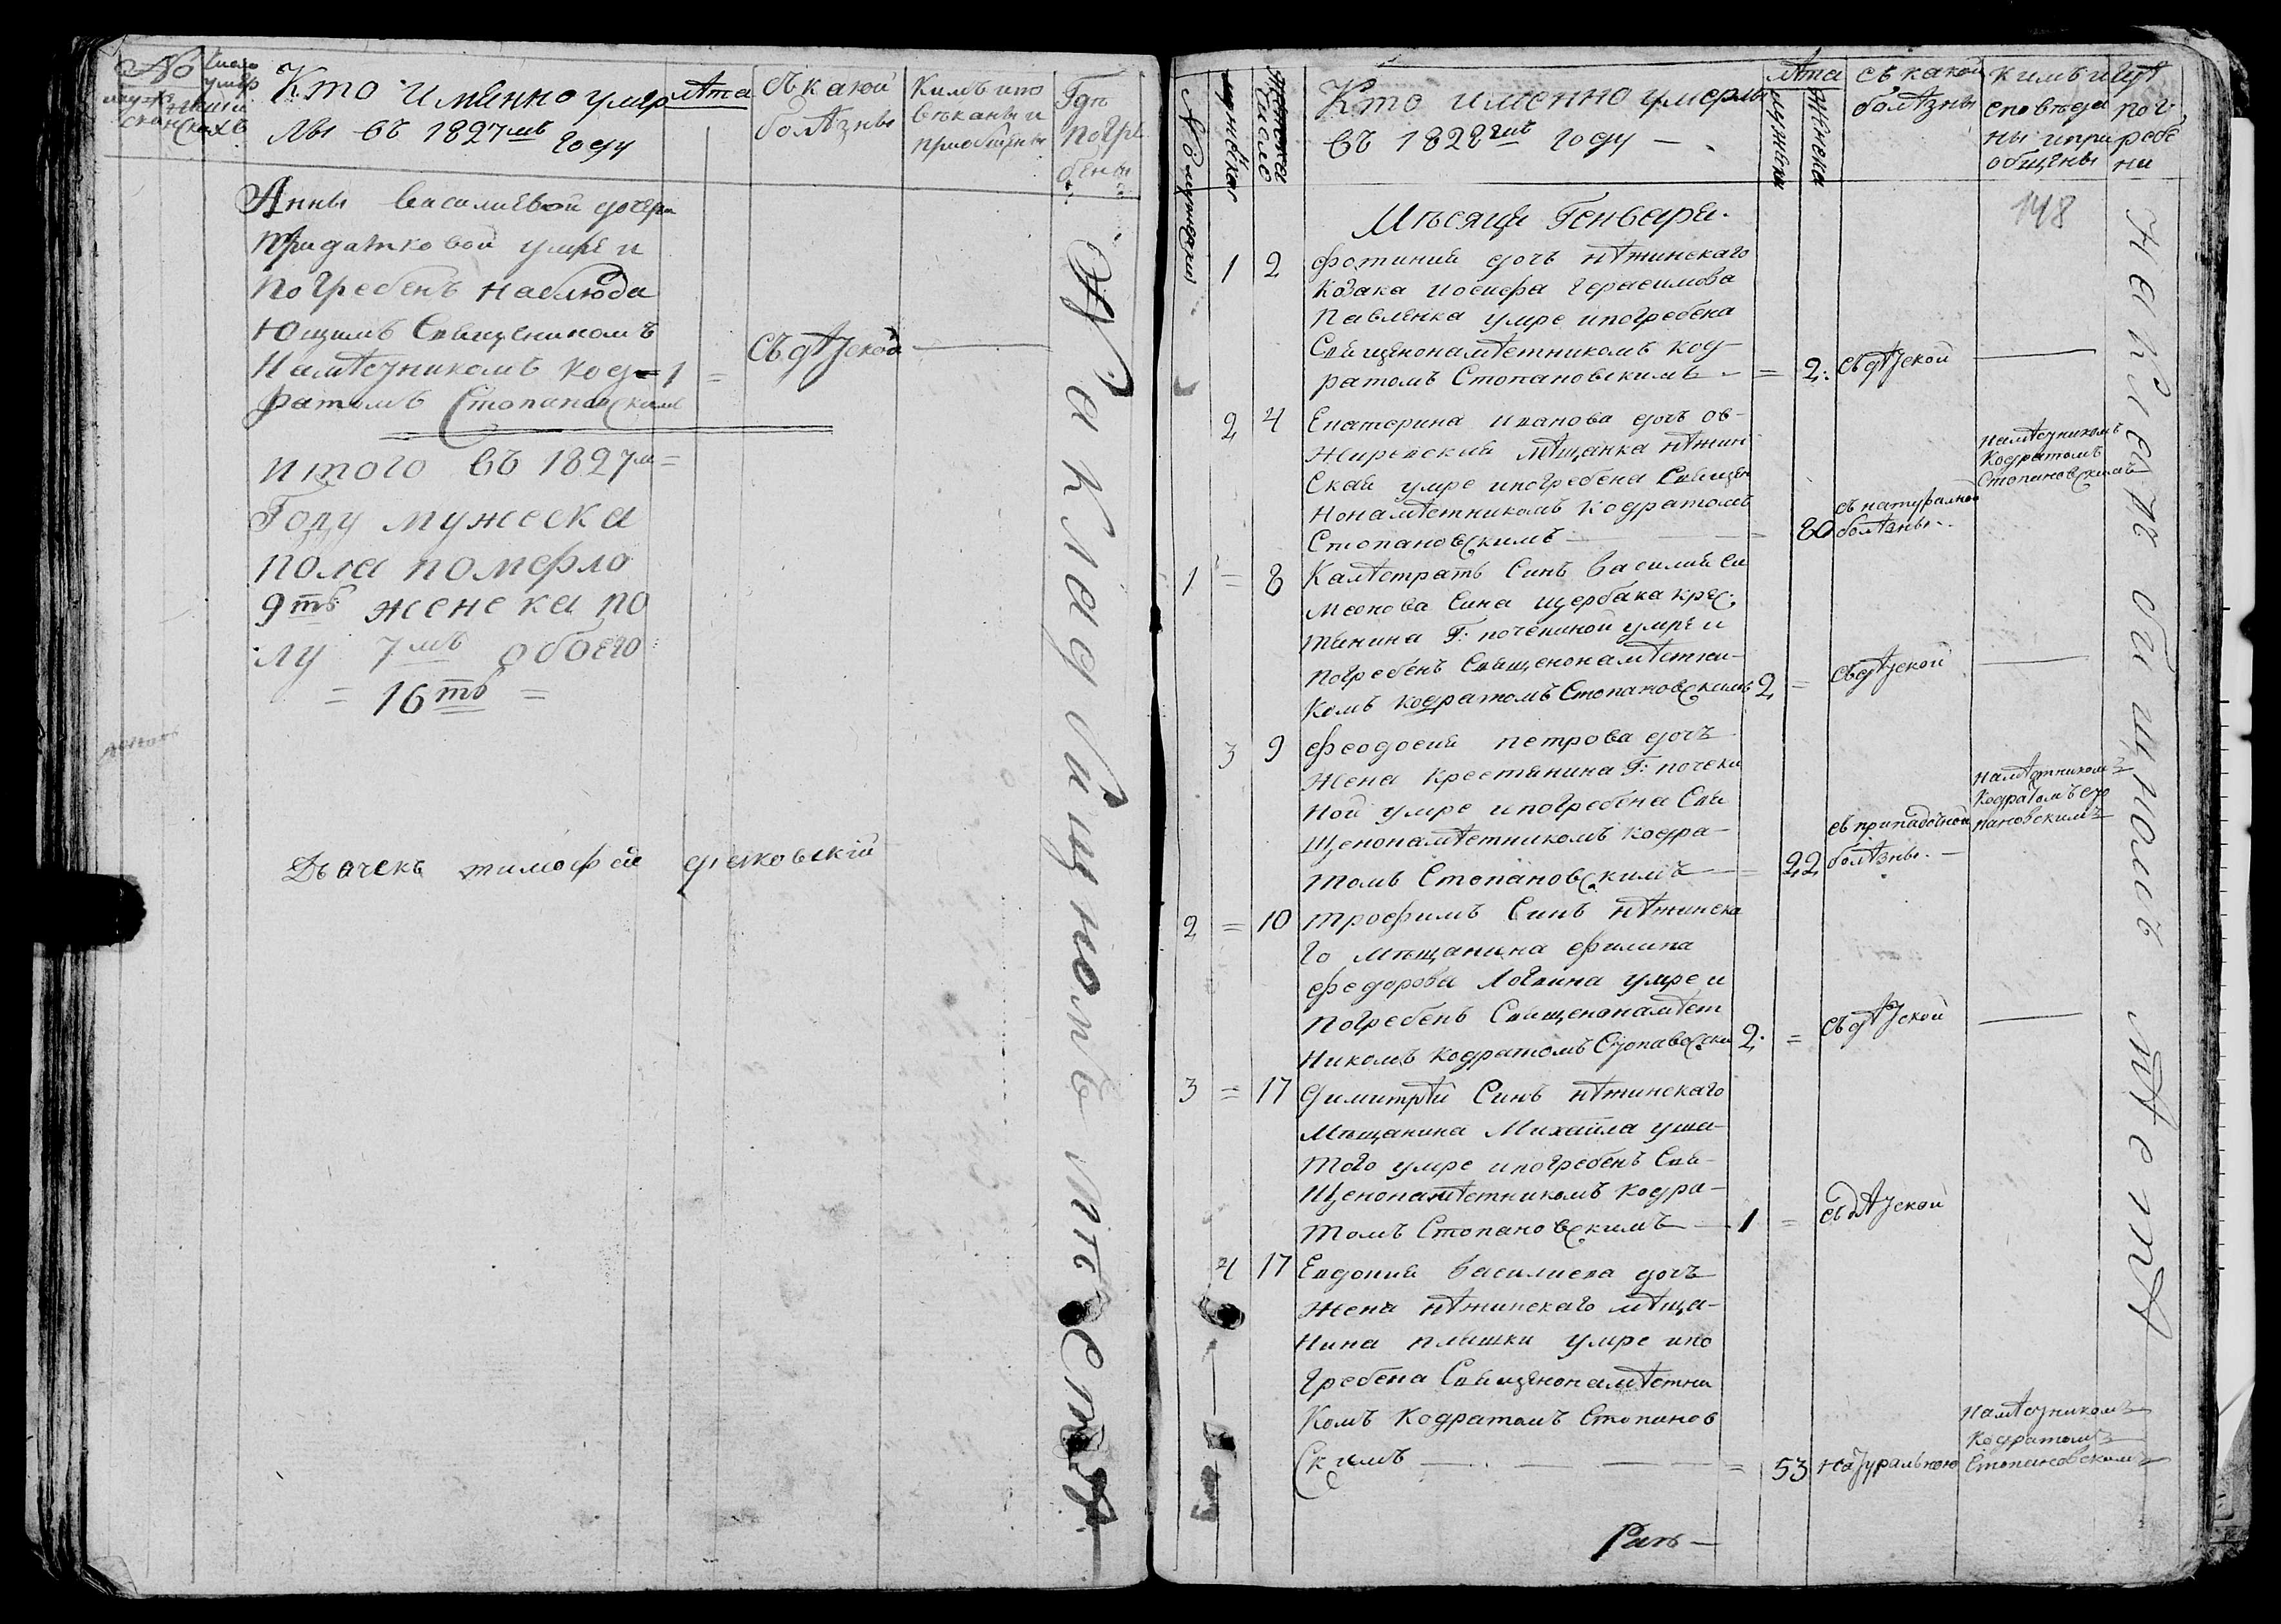 №
число
умер
мужес
женски
скихъ
Кто имянно умер
лы въ 1827мъ году
лѣта
съ какой
болѣзны
Кимъ испо
веданы и
приобщены
Гдѣ
погре
бены
Анны василиевой дочери
придатковой умре и
погребенъ наблюда
Ющимъ Священиком ъ
Намѣсником ъ код= 1 = съ дѣтской
ратомъ Стопановскимъ
итого въ 1827м=
Году мужеска
пола померло
9ть женска по
лу 7мъ обоего
= 16ть =
Дьячекъ тимофей
На кладбищномъ мѣстѣ
№ мужески
женска
число
Кто именно умерлы
въ 1828мъ году —
лѣта
мужеска
женска
съ какой
болѣзны
кимъ и
сповѣда
ны и при
общены
гдѣ
пог
ребе
ни
148
Мѣсяца Генваря.
1 2 Фотиния дочъ нѣжинскаго
козака иосифа Герасимова
Павленка умре и погребена
Священонамѣстникомъ код-
ратомъ Стопановскимъ — = 2: съ дѣтской
2 4 Екатерина иванова дочъ ов-
жиревская мѣщанка нѣжин
ская умре и погребена Свящe
нонамѣстникомъ кодратомъ
Стопановскимъ — = 80 съ натуралной болѣзны.
намѣсникомъ
Кодратомъ
Стопановскимъ
1 = 8 Калѣстратъ Синъ василия си
меонова Сина щербака крес:
тянина Г: почекиной умре и
погребенъ Священонамѣстни-
комъ кодратомъ Стопановскимъ 2 = съ дѣтской
3 9 Феодосия петрова дочъ
жена крестянина Г: почеки
ной умре и погребена Свя
щенонамѣстникомъ кодра-
томъ Стопановскимъ — = 22 съ припадочной болѣзны. —
намѣстникомъ
Кодратомъ сто
пановскимъ
2 = 10 трофимъ Синъ нѣжинска
го мѣщанина филипа
федорова Логвина умре и
погребенъ Священонамѣст
никомъ кодратомъ Стопановски 2. = съ дѣтской
3 = 17 Димитрий Синъ нѣжинскаго
мѣщанина Михаила уша-
того умре и погребенъ Свя-
щенонамѣстникомъ кодра-
томъ Стопановскимъ — 1 = съ дѣтской
4 17 Евдокия василиева дочъ
жена нѣжинскаго мѣща-
нина плышки умре и по
гребена Священонамѣстни
комъ Кодратомъ Стопанов
Скимъ — — — = 53 натуральною
намѣсникомъ
Кодратомъ
Стопановскимъ
на кладбищномъ мѣстѣ